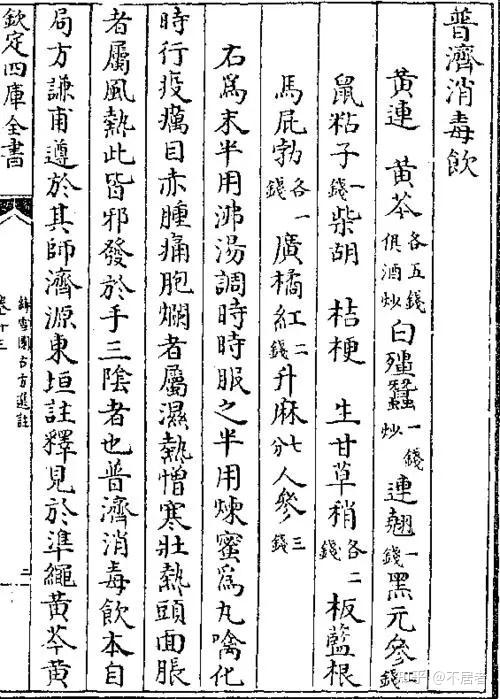 普濟消毒飲
黃連 黃芩各五錢俱酒炒白殭蠶一錢炒連翹一錢黑元參錢
鼠粘子一錢柴胡 桔梗 生甘草稍各二錢板藍根
馬屁勃各一錢廣橘紅二錢升麻七分人參三錢
右爲末半用沸湯調時時服之半用煉蜜爲丸噙化
時行疫癘目赤腫痛胞爛者屬濕熱憎寒壯熱頭面脹
者屬風熱此皆邪發於手三陰者也普濟消毒飲本自
局方謙甫遵於其師濟源東垣註釋見於準繩黃芩黃
欽定四庫全書
絳雪園古方選註
卷十三
二
知乎 @不居者